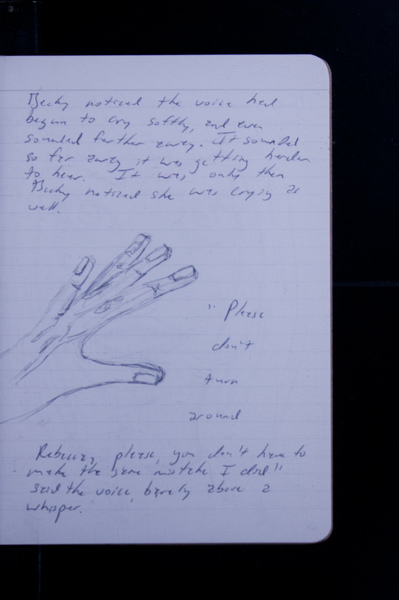 Becky noticed the voice had
begun to cry softly, and even
sounded further away. It sounded
so far away it was getting harder
to hear. It was only then
Becky noticed she was crying as
well.
"Please
don't
turn
around
Rebecca, please, you don't have to
make the same mistake I did"
said the voice, barely above a
whisper.